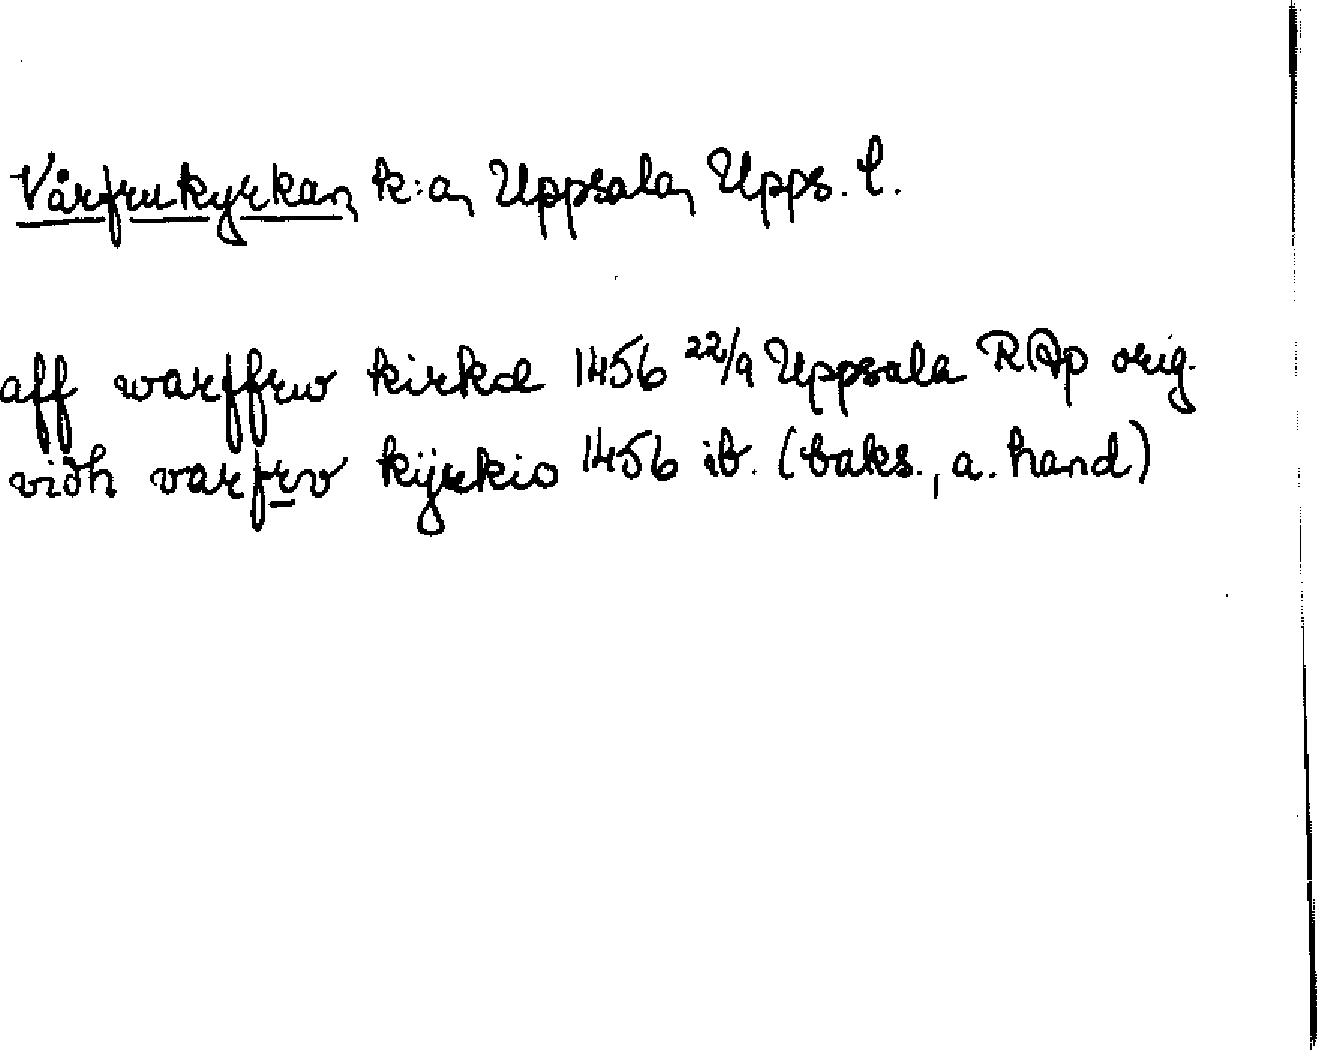 Vårfrukyrkan, k:a, Uppsala, Upps. l.
aff warffrw kirkæ 1456 22/9 Uppsala RAp orig.
vidh varfrv kyrkio 1456 ib. (baks., a. hand)